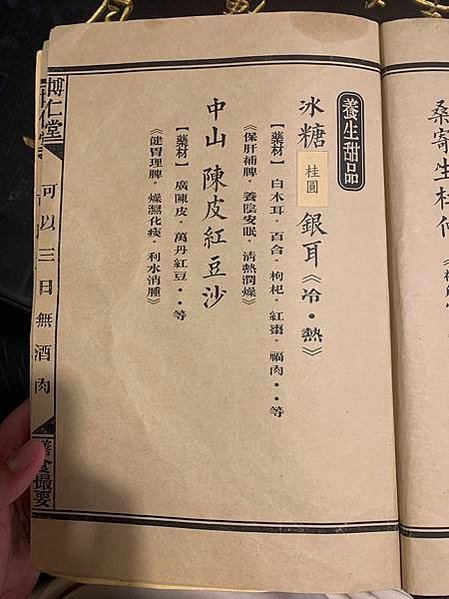 桑寄生杜仲
養生甜品
冰糖桂圓銀耳《冷・熱》
【藥材】白木耳。百合。枸杞。紅棗。福肉・・等
《保肝補脾。養陰安眠。清熱潤燥》
中山 陳皮紅豆沙
【藥材】廣陳皮。萬丹紅豆・・等
《健胃理脾。燥濕化痰。利水消腫》
博仁堂
可以三日無酒肉
膳食撮要